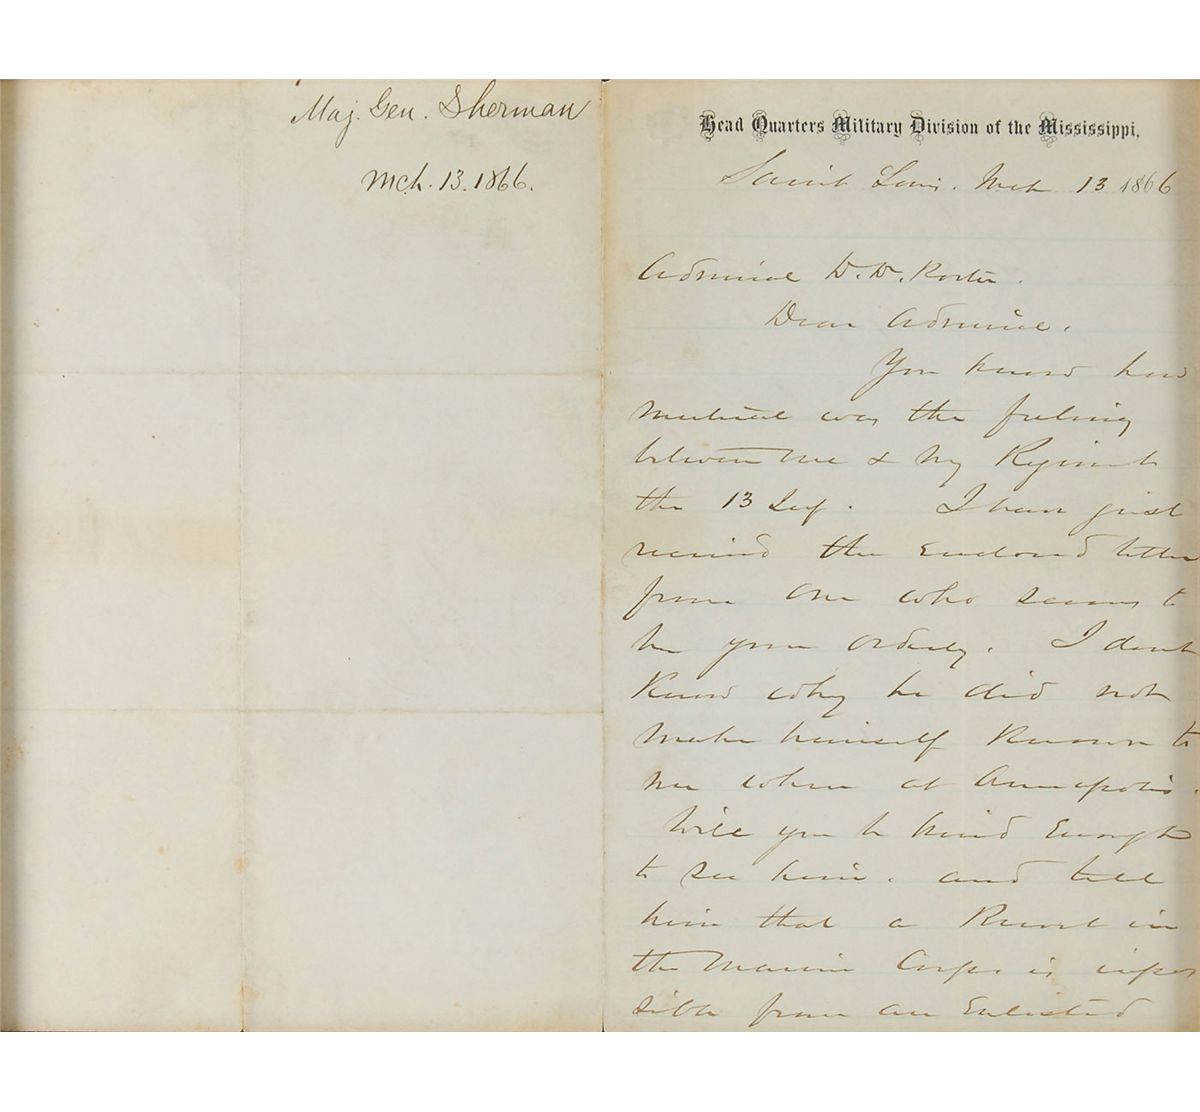 Maj. Gen. Sherman
Mch. 13. 1866.
Head Quarters Military Division of the Mississippi,
Saint Louis. Mch 13 1866
Admiral D. D. Porter.
Dear Admiral.
You know how
mutual was the feeling
between me & my Regiment
the 13 Inf. I have just
received the enclosed letter
from one who seems to
be your orderly. I dont
know why he did not
make himself known to
me when at Annapolis.
Will you be kind enough
to see him. and tell
him that a in
the Marine Corps is impos
sible from an Enlisted